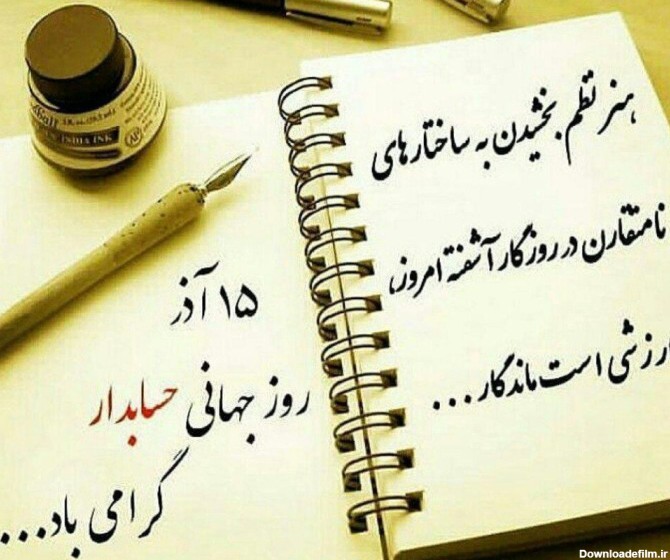 هنر نظم بخشیدن به ساختارهای
نامتقارن در روزگار آشفته امروز،
ارزشی است ماندگار...
۱۵ آذر
روز جهانی حسابدار
گرامی باد...
INDIA INK
Downloadefilm.ir